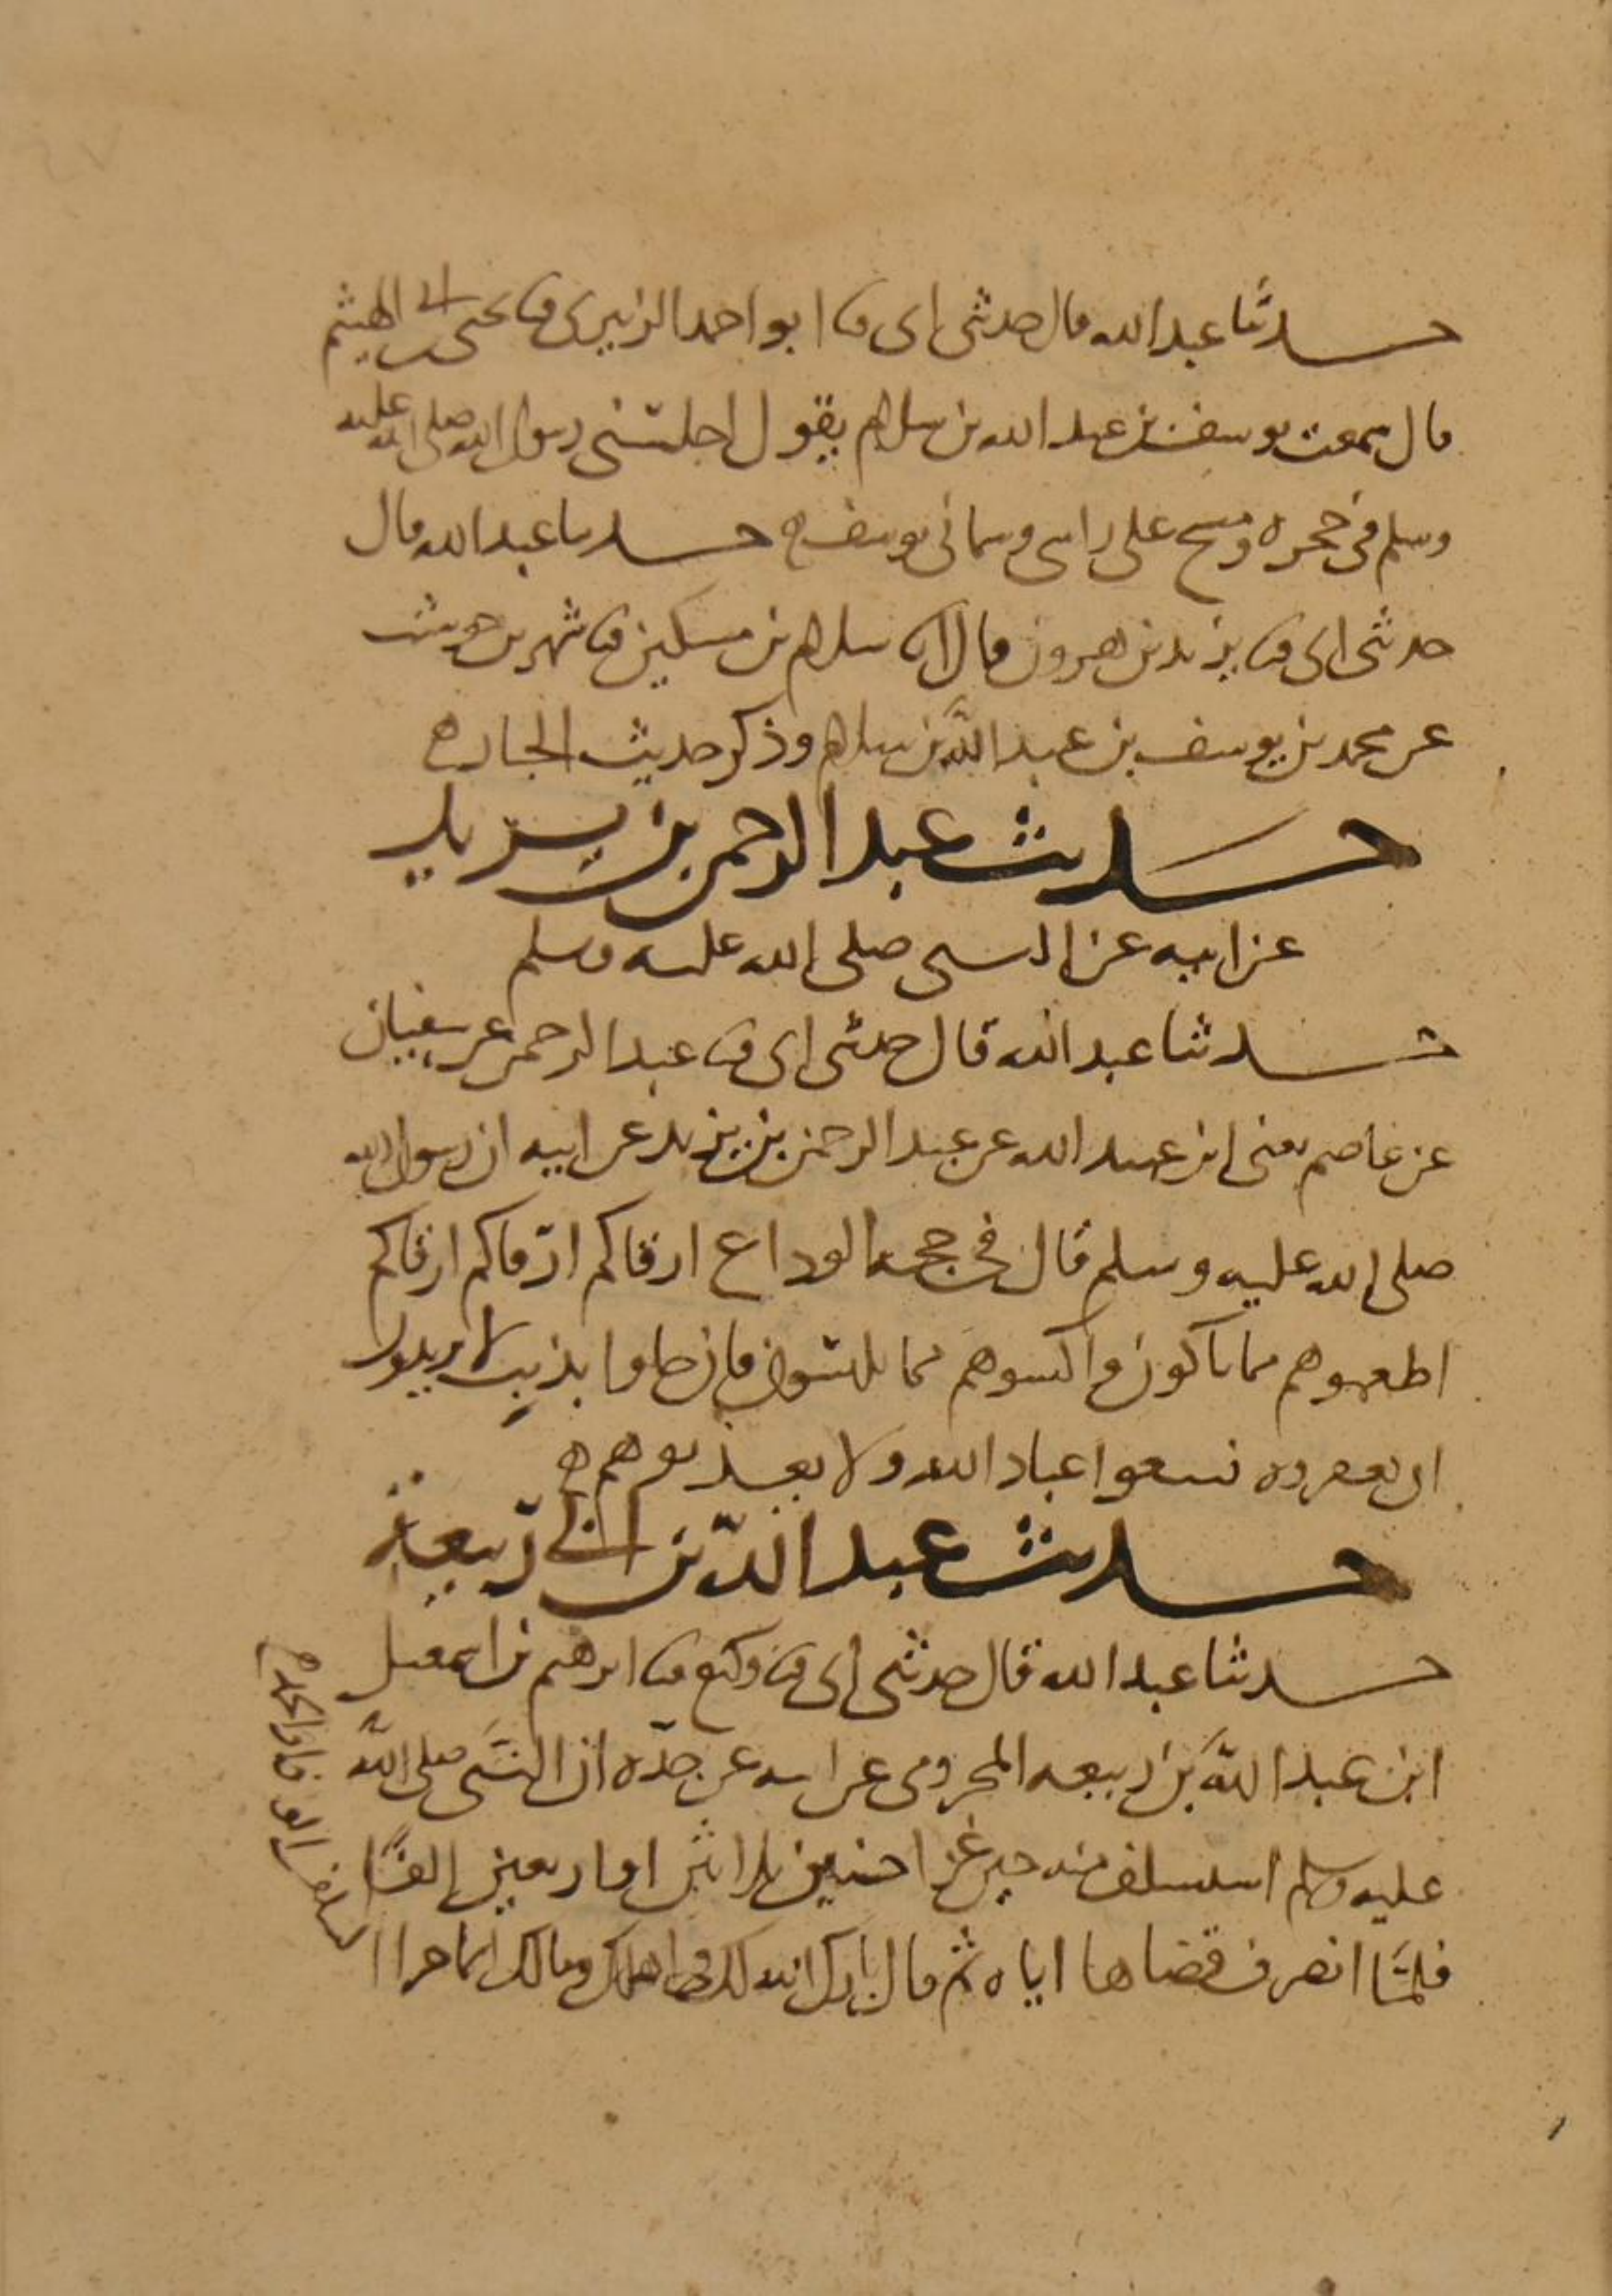 حدثنا عبد الله قال حدثني ابي ثنا ابو احمد الزبيري ثنا يحيى بن ابي الهيثم
قال سمعت يوسف بن عبد الله بن سلام يقول اجلسني رسول الله صلى الله عليه
وسلم في حجره ومسح على راسي وسماني يوسف ه حدثنا عبد الله قال
حدثني ابي ثنا يزيد بن هرون قال انا سلام بن مسكين ثنا شهر بن حوشب
عن محمد بن يوسف بن عبد الله بن سلام وذكر حديث الجار ه
حديث عبد الرحمن بن يزيد
عن ابيه عن النبي صلى الله عليه وسلم
حدثنا عبد الله قال حدثني ابي ثنا عبد الرحمن عن سفيان
عن عاصم يعني ابن عبيد الله عن عبد الرحمن بن يزيد عن ابيه ان رسول الله
صلى الله عليه وسلم قال في حجة الوداع ارقاكم ارقاكم ارقاكم
اطعموهم مما تاكلون واكسوهم مما تلبسون فان جاوا بذنب لا تريدون
ان تغفروه فبيعوا عباد الله ولا تعذبوهم ه
حديث عبد الله بن ابي ربيعة
حدثنا عبد الله قال حدثني ابي ثنا وكيع ثنا ابرهيم بن اسمعيل
ابن عبد الله بن ربيعه المخزومي عن ابيه عن جده ان النبي صلى الله
عليه وسلم استسلف منه حين غزا حنين ثلاثين او اربعين الفا
فلما انصرف قضاها اياه ثم قال بارك الله لك في اهلك ومالك انما جزا
السلف الوفا والحمد ه